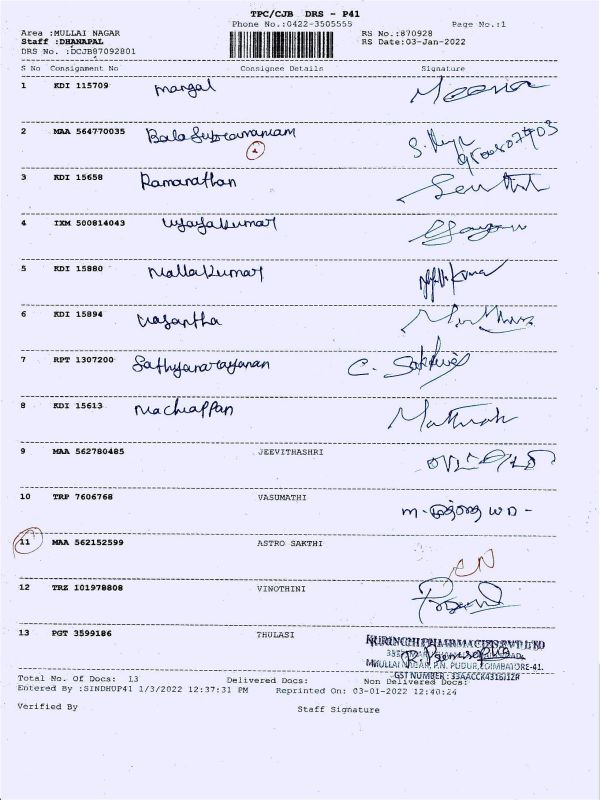 TPC/CJB DRS - P41
Phone No.:0422-3505555 Page No.:1
Area :MULLAI NAGAR RS No.:870928
Staff :DHANAPAL RS Date:03-Jan-2022
DRS No. :DCJB87092801
S No Consignment No Consignee Details Signature
1 KDI 115709 Mangal Meena
2 MAA 564770035 Balasubramaniam
3 KDI 15658 Ramanathan Senthil
4 IXM 500814043 Vijayakumar
5 KDI 15880 Nallakumar
6 KDI 15894 Vasantha
7 RPT 1307200 Sathyanarayanan C.
8 KDI 15613 Nachiappan
9 MAA 562780485 JEEVITHASHRI
10 TRP 7606768 VASUMATHI
11 MAA 562152599 ASTRO SAKTHI
12 TRZ 101978808 VINOTHINI
13 PGT 3599186 THULASI KURINCHI PHARMACIES PVT LTD
MULLAI NAGAR, P.N. PUDUR, COIMBATORE-41.
GST NUMBER : 33AACCK4316J1ZR
Total No. Of Docs: 13 Delivered Docs: Non Delivered Docs:
Entered By :SINDHUP41 1/3/2022 12:37:31 PM Reprinted On: 03-01-2022 12:40:24
Verified By Staff Signature